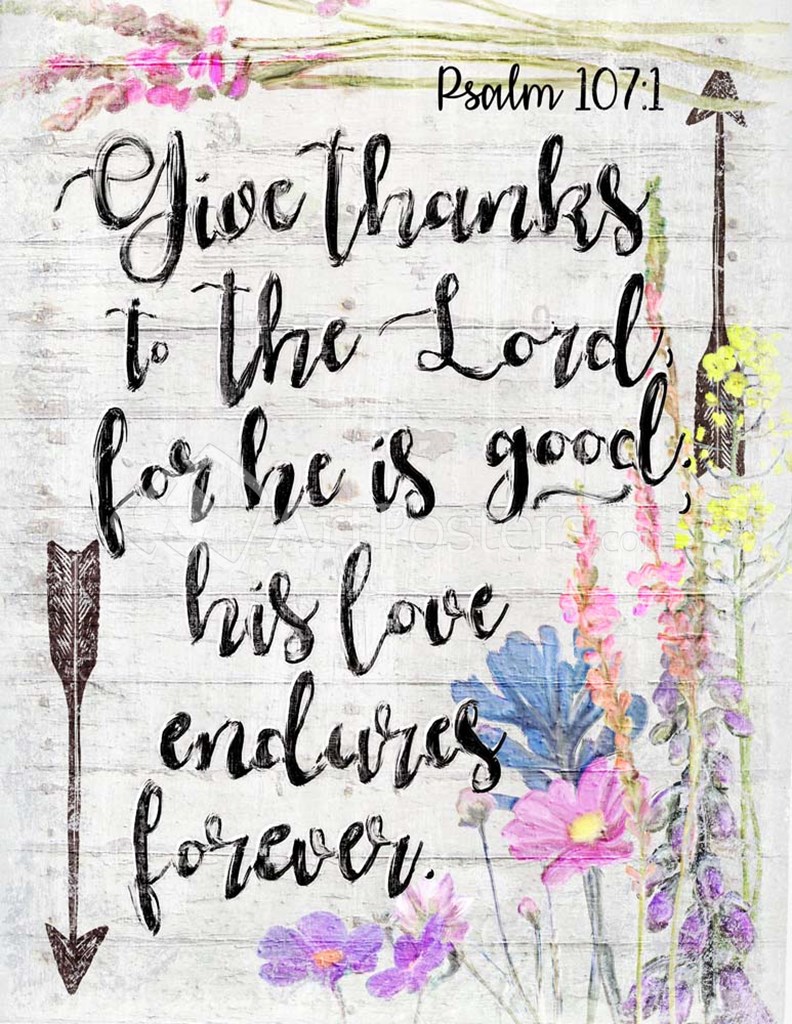 Psalm 107:1
Give thanks
to the Lord,
for he is good;
his love
endures
forever.
ArtPosters.com